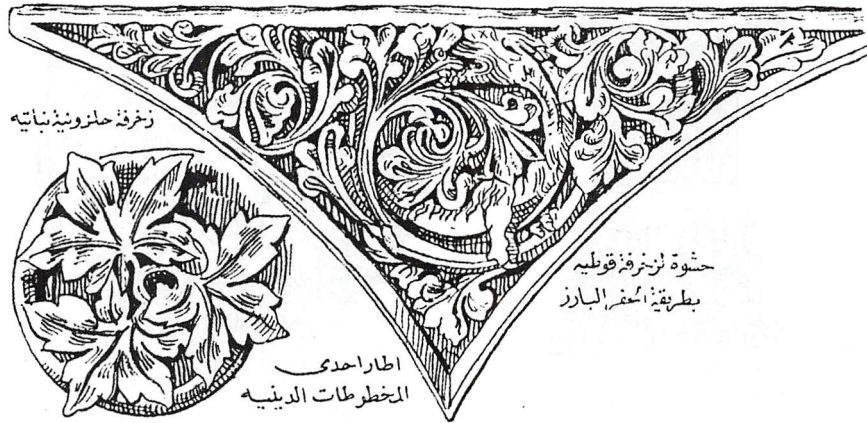 زخرفة حلزونية نباتيه
حشوة لزخرفة قوطيه
بطريقة الحفر البارز
اطار احدى
المخطوطات الدينيه